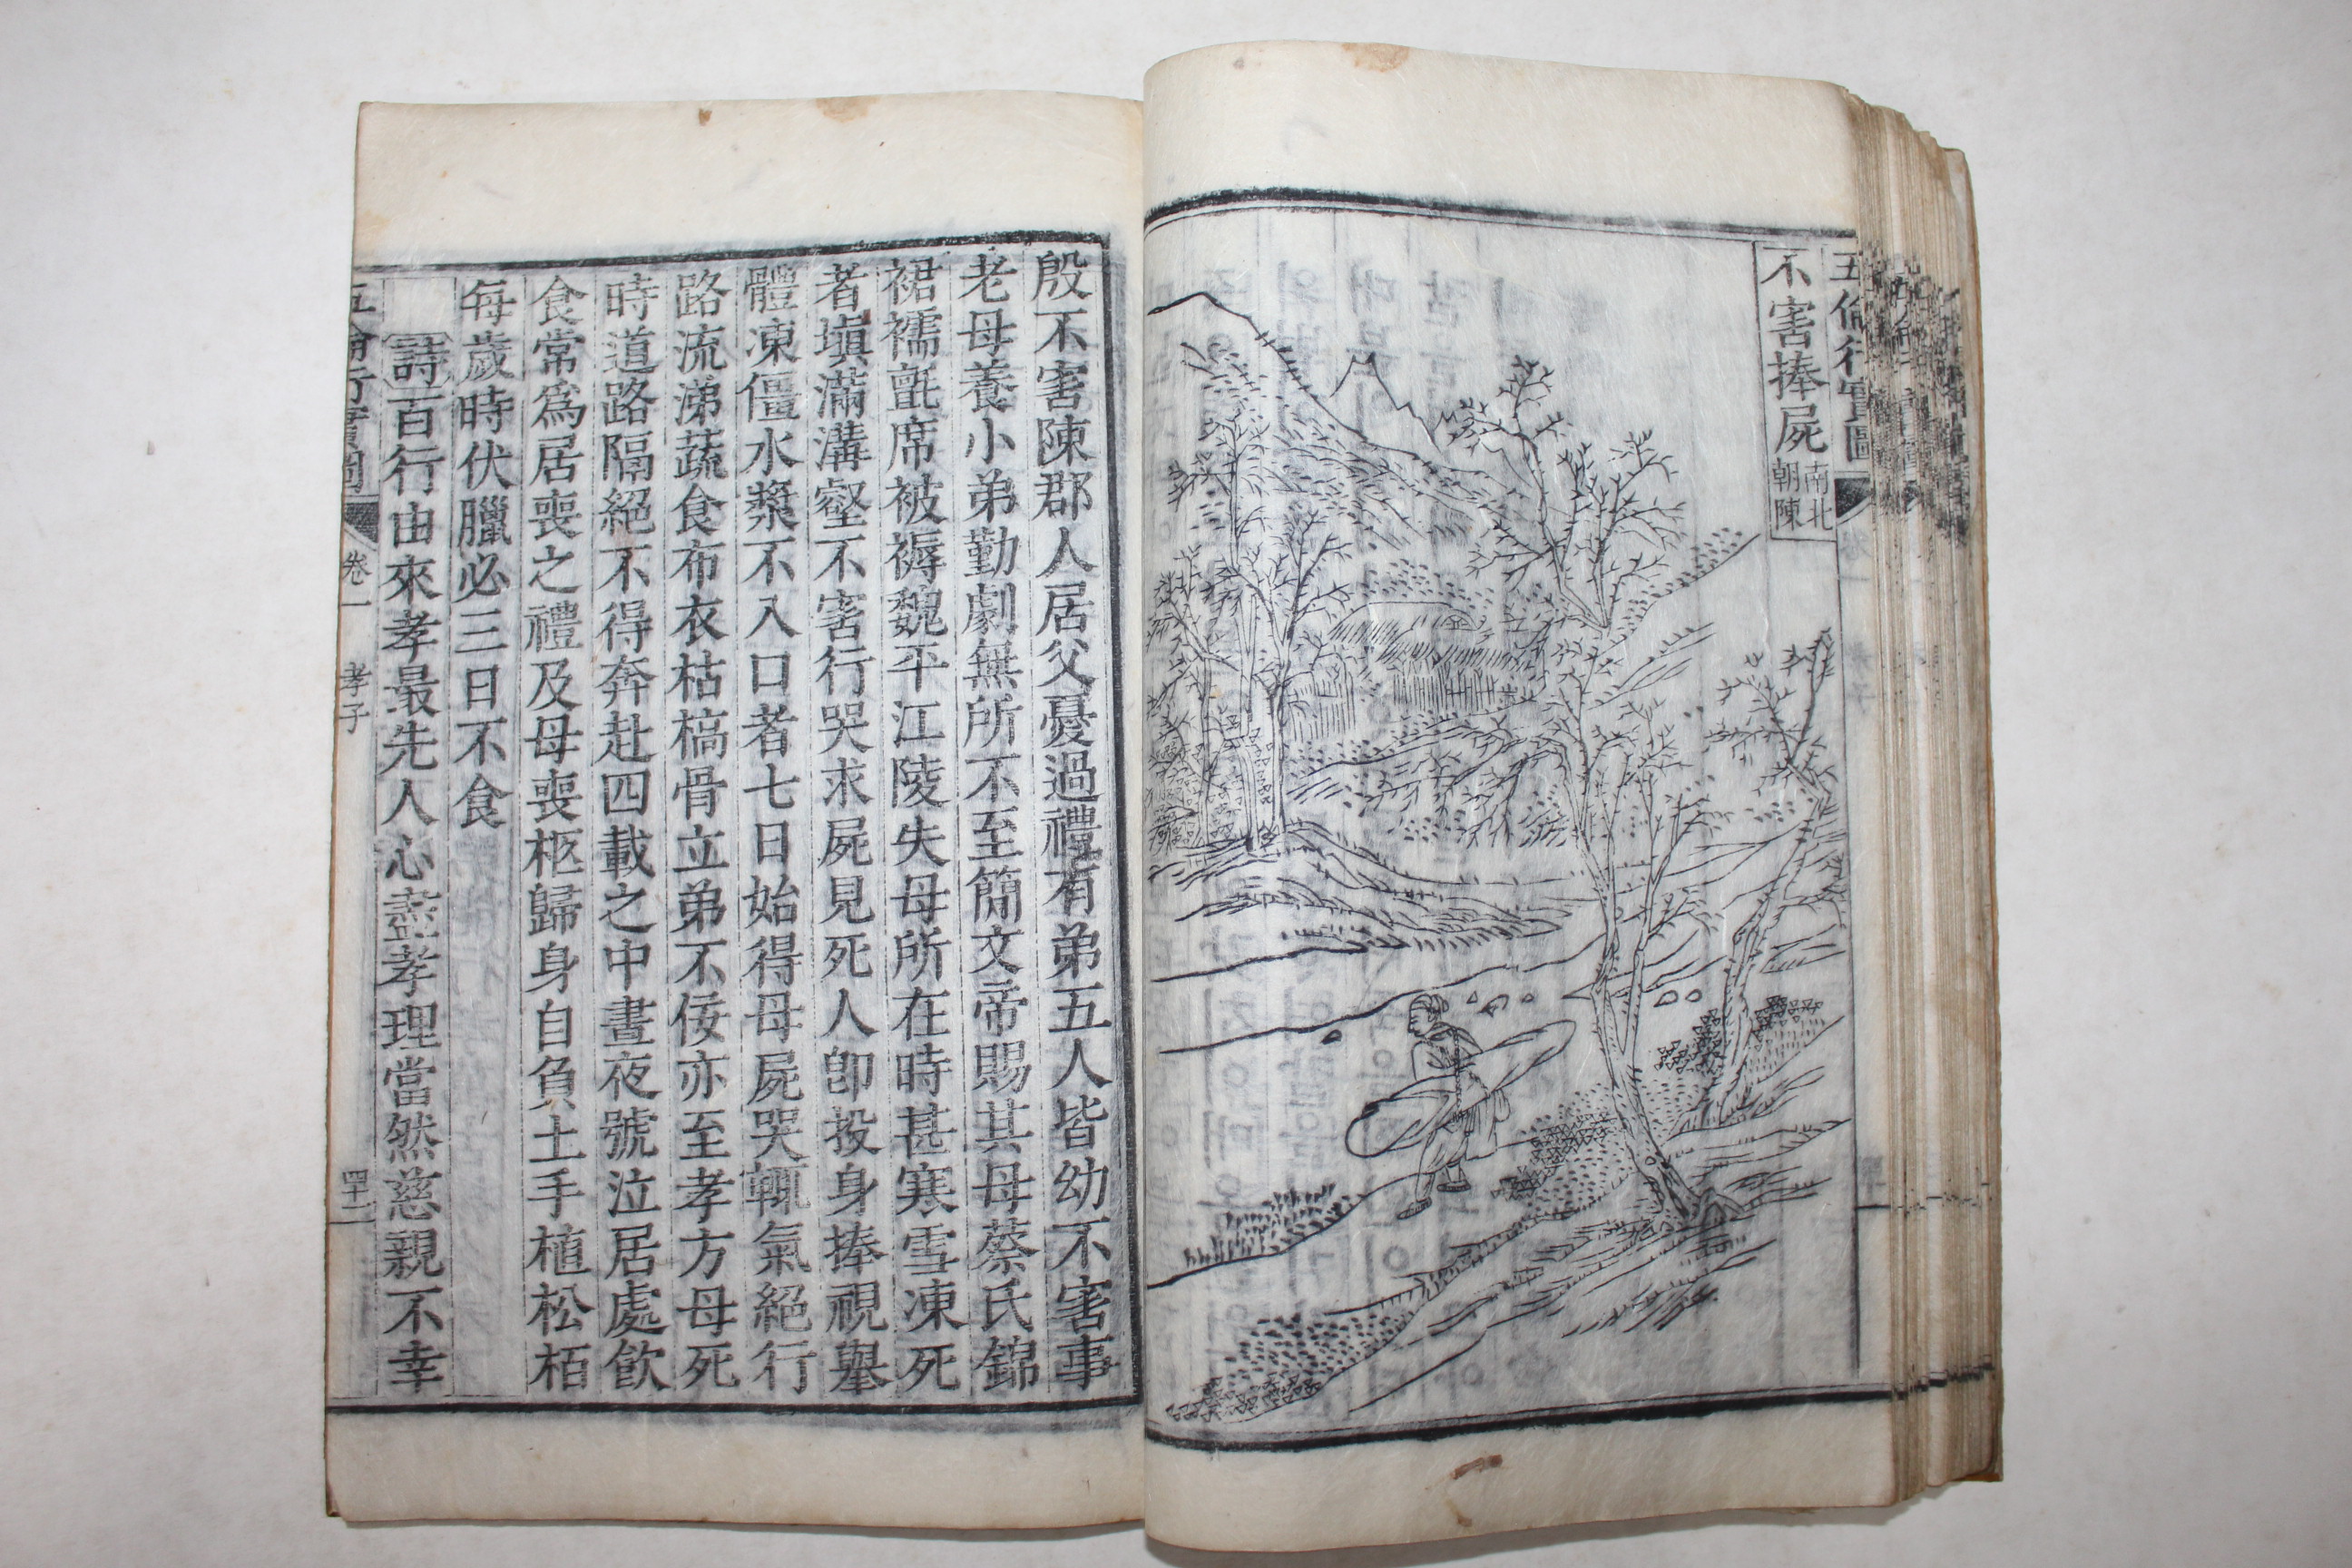 五倫行實圖
不害捧屍 南北朝陳
殷不害陳郡人居父憂過禮有弟五人皆幼不害事
老母養小弟勤劇無所不至簡文帝賜其母蔡氏錦
裙襦氈席被褥魏平江陵失母所在時甚寒雪凍死
者塡滿溝壑不害行哭求屍見死人卽投身捧視擧
體凍僵水漿不入口者七日始得母屍哭輒氣絕行
路流涕蔬食布衣枯槁骨立弟不佞亦至孝方母死
時道路隔絕不得奔赴四載之中晝夜號泣居處飮
食常爲居喪之禮及母喪柩歸身自負土手植松栢
每歲時伏臘必三日不食
詩 百行由來孝最先人心盡孝理當然慈親不幸
五倫行實圖 卷一 孝子 四十二